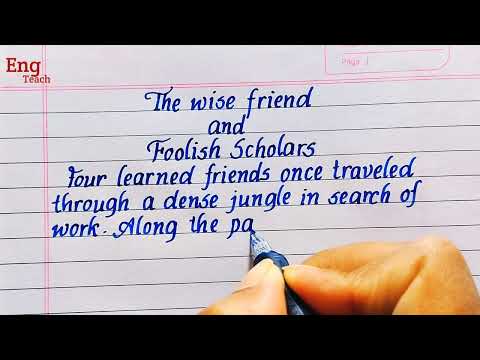 Eng
Teach
Page
The wise friend
and
Foolish Scholars
Four learned friends once traveled
through a dense jungle in search of
work. Along the pa